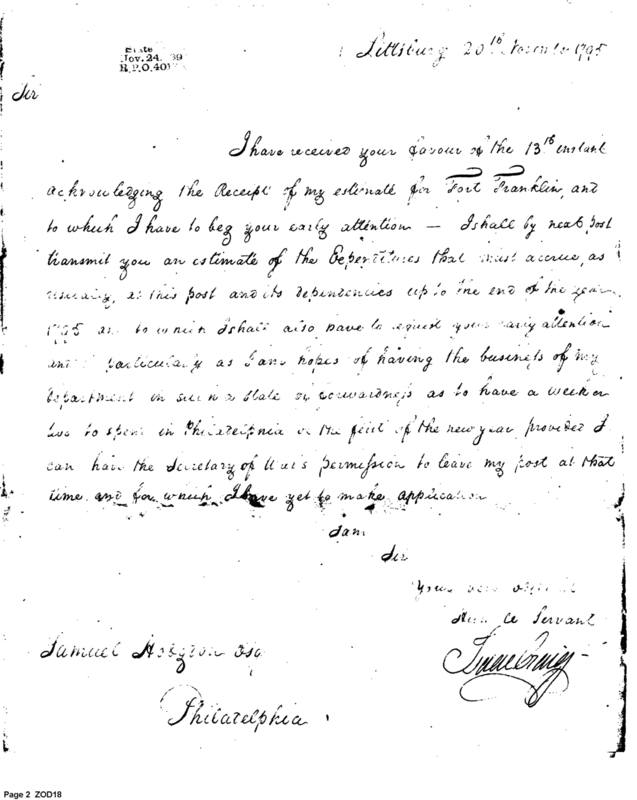 State
Nov. 24. 39
R.P.O. 401
Pittsburg 20th November 1795
Sir
I have received your favour of the 13th instant
acknowledging the Receipt of my estimate for Fort Franklin, and
to which I have to beg your early attention — I shall by next post
transmit you an estimate of the Expenditures that must accrue, as
usually, at this post and its dependencies up to the end of the year
1795 and to which I shall also have to request your early attention
and particularly as I am hopes of having the business of my
Department in such a State of forwardness as to have a week or
two to spend in Philadelphia at the first of the new year provided I
can have the Secretary of War's permission to leave my post at that
time and for which I have yet to make application
I am
Sir
Your very obedient
Humble Servant
Isaac Craig
Samuel Hodgdon Esq
Philadelphia
Page 2 ZOD18